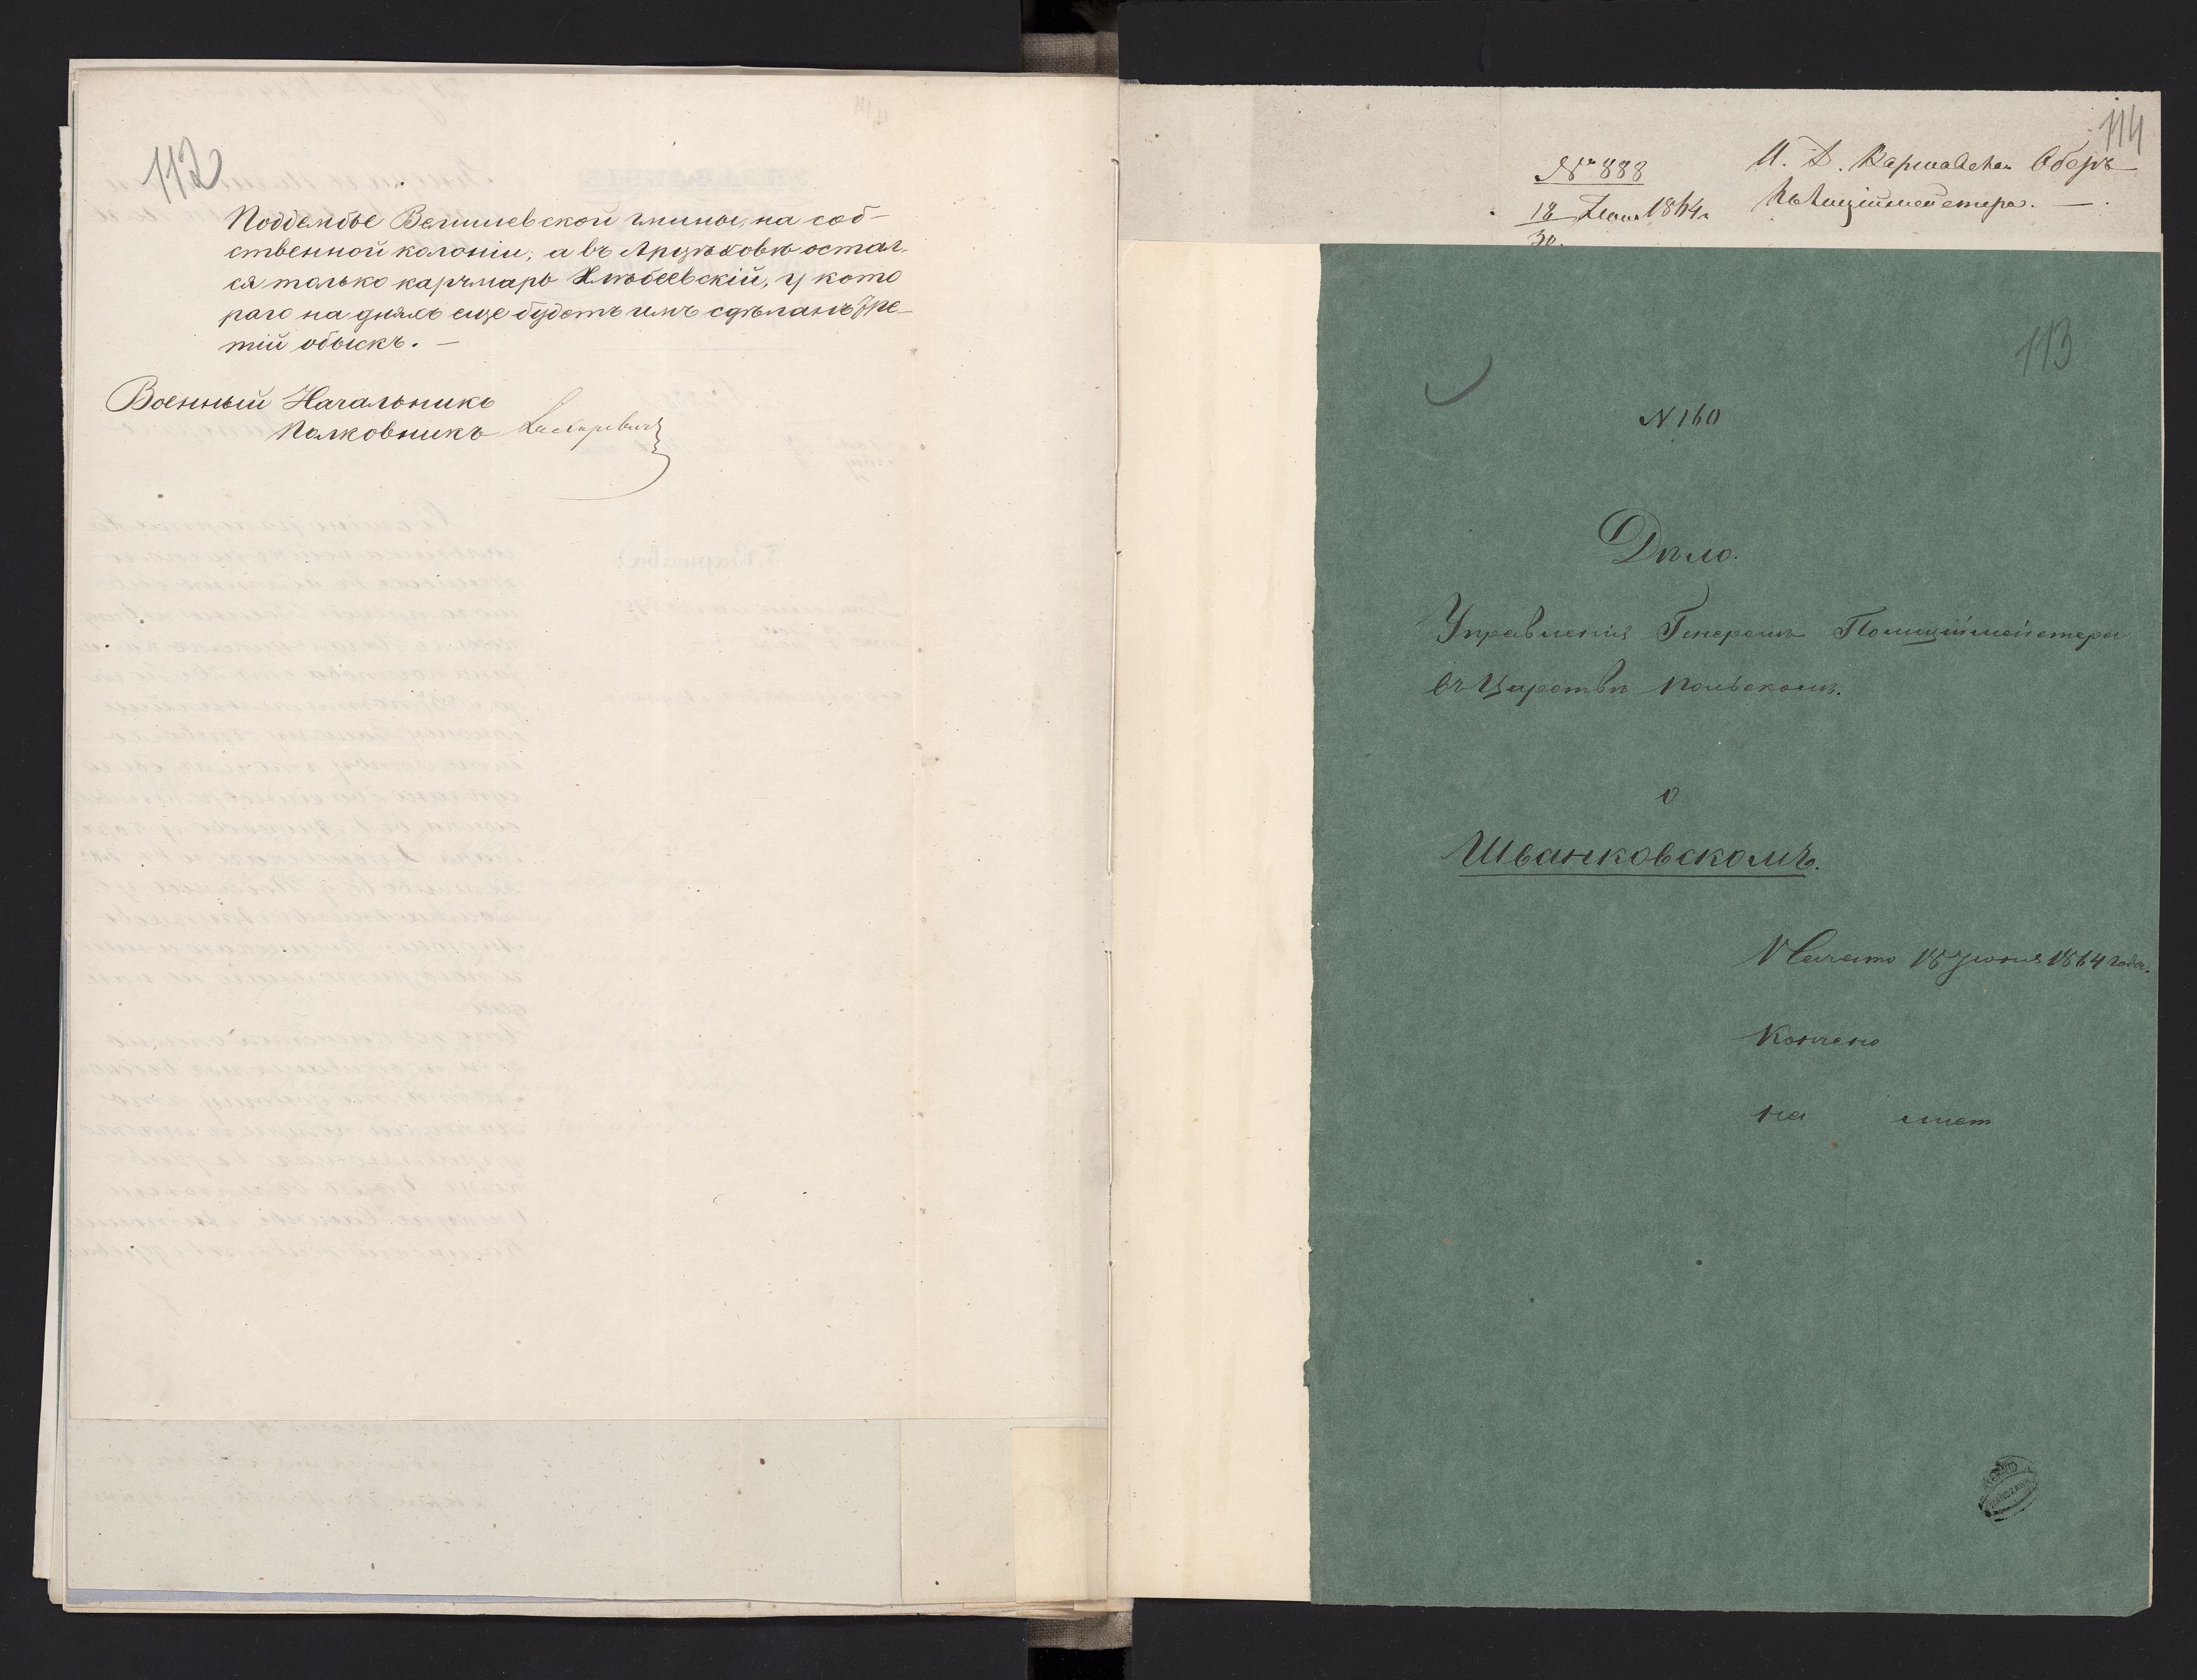 112
Поддембье Велишевской гмины, на соб-
ственной колоніи, а въ остал-
ся только карчмарь Хлѣбевскій, у кото
раго на дняхъ еще будетъ имъ сдѣланъ тре-
тій обыскъ. —
Военный Начальникъ
Полковникъ
114
№ 888
18/30 Іюня 1864 г.
И. Д. Варшавскаго Оберъ
Полиціймейстера. —
113
N 160
Дѣло.
Управленія Генералъ Полиціймейстера
въ Царствѣ Польскомъ.
о
Шванковскомъ.
Начато 18 Іюня 1864 года.
Кончено
на лист